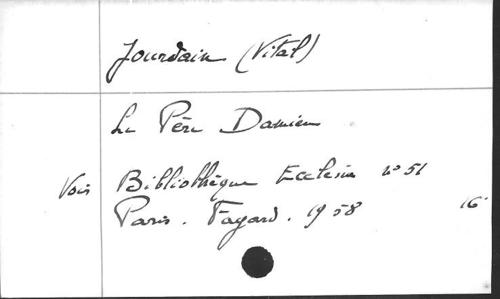 Jourdain (Vital)
Le Père Damien
Voir Bibliothèque Ecclesia n° 51
Paris. Fayard. 1958 16°